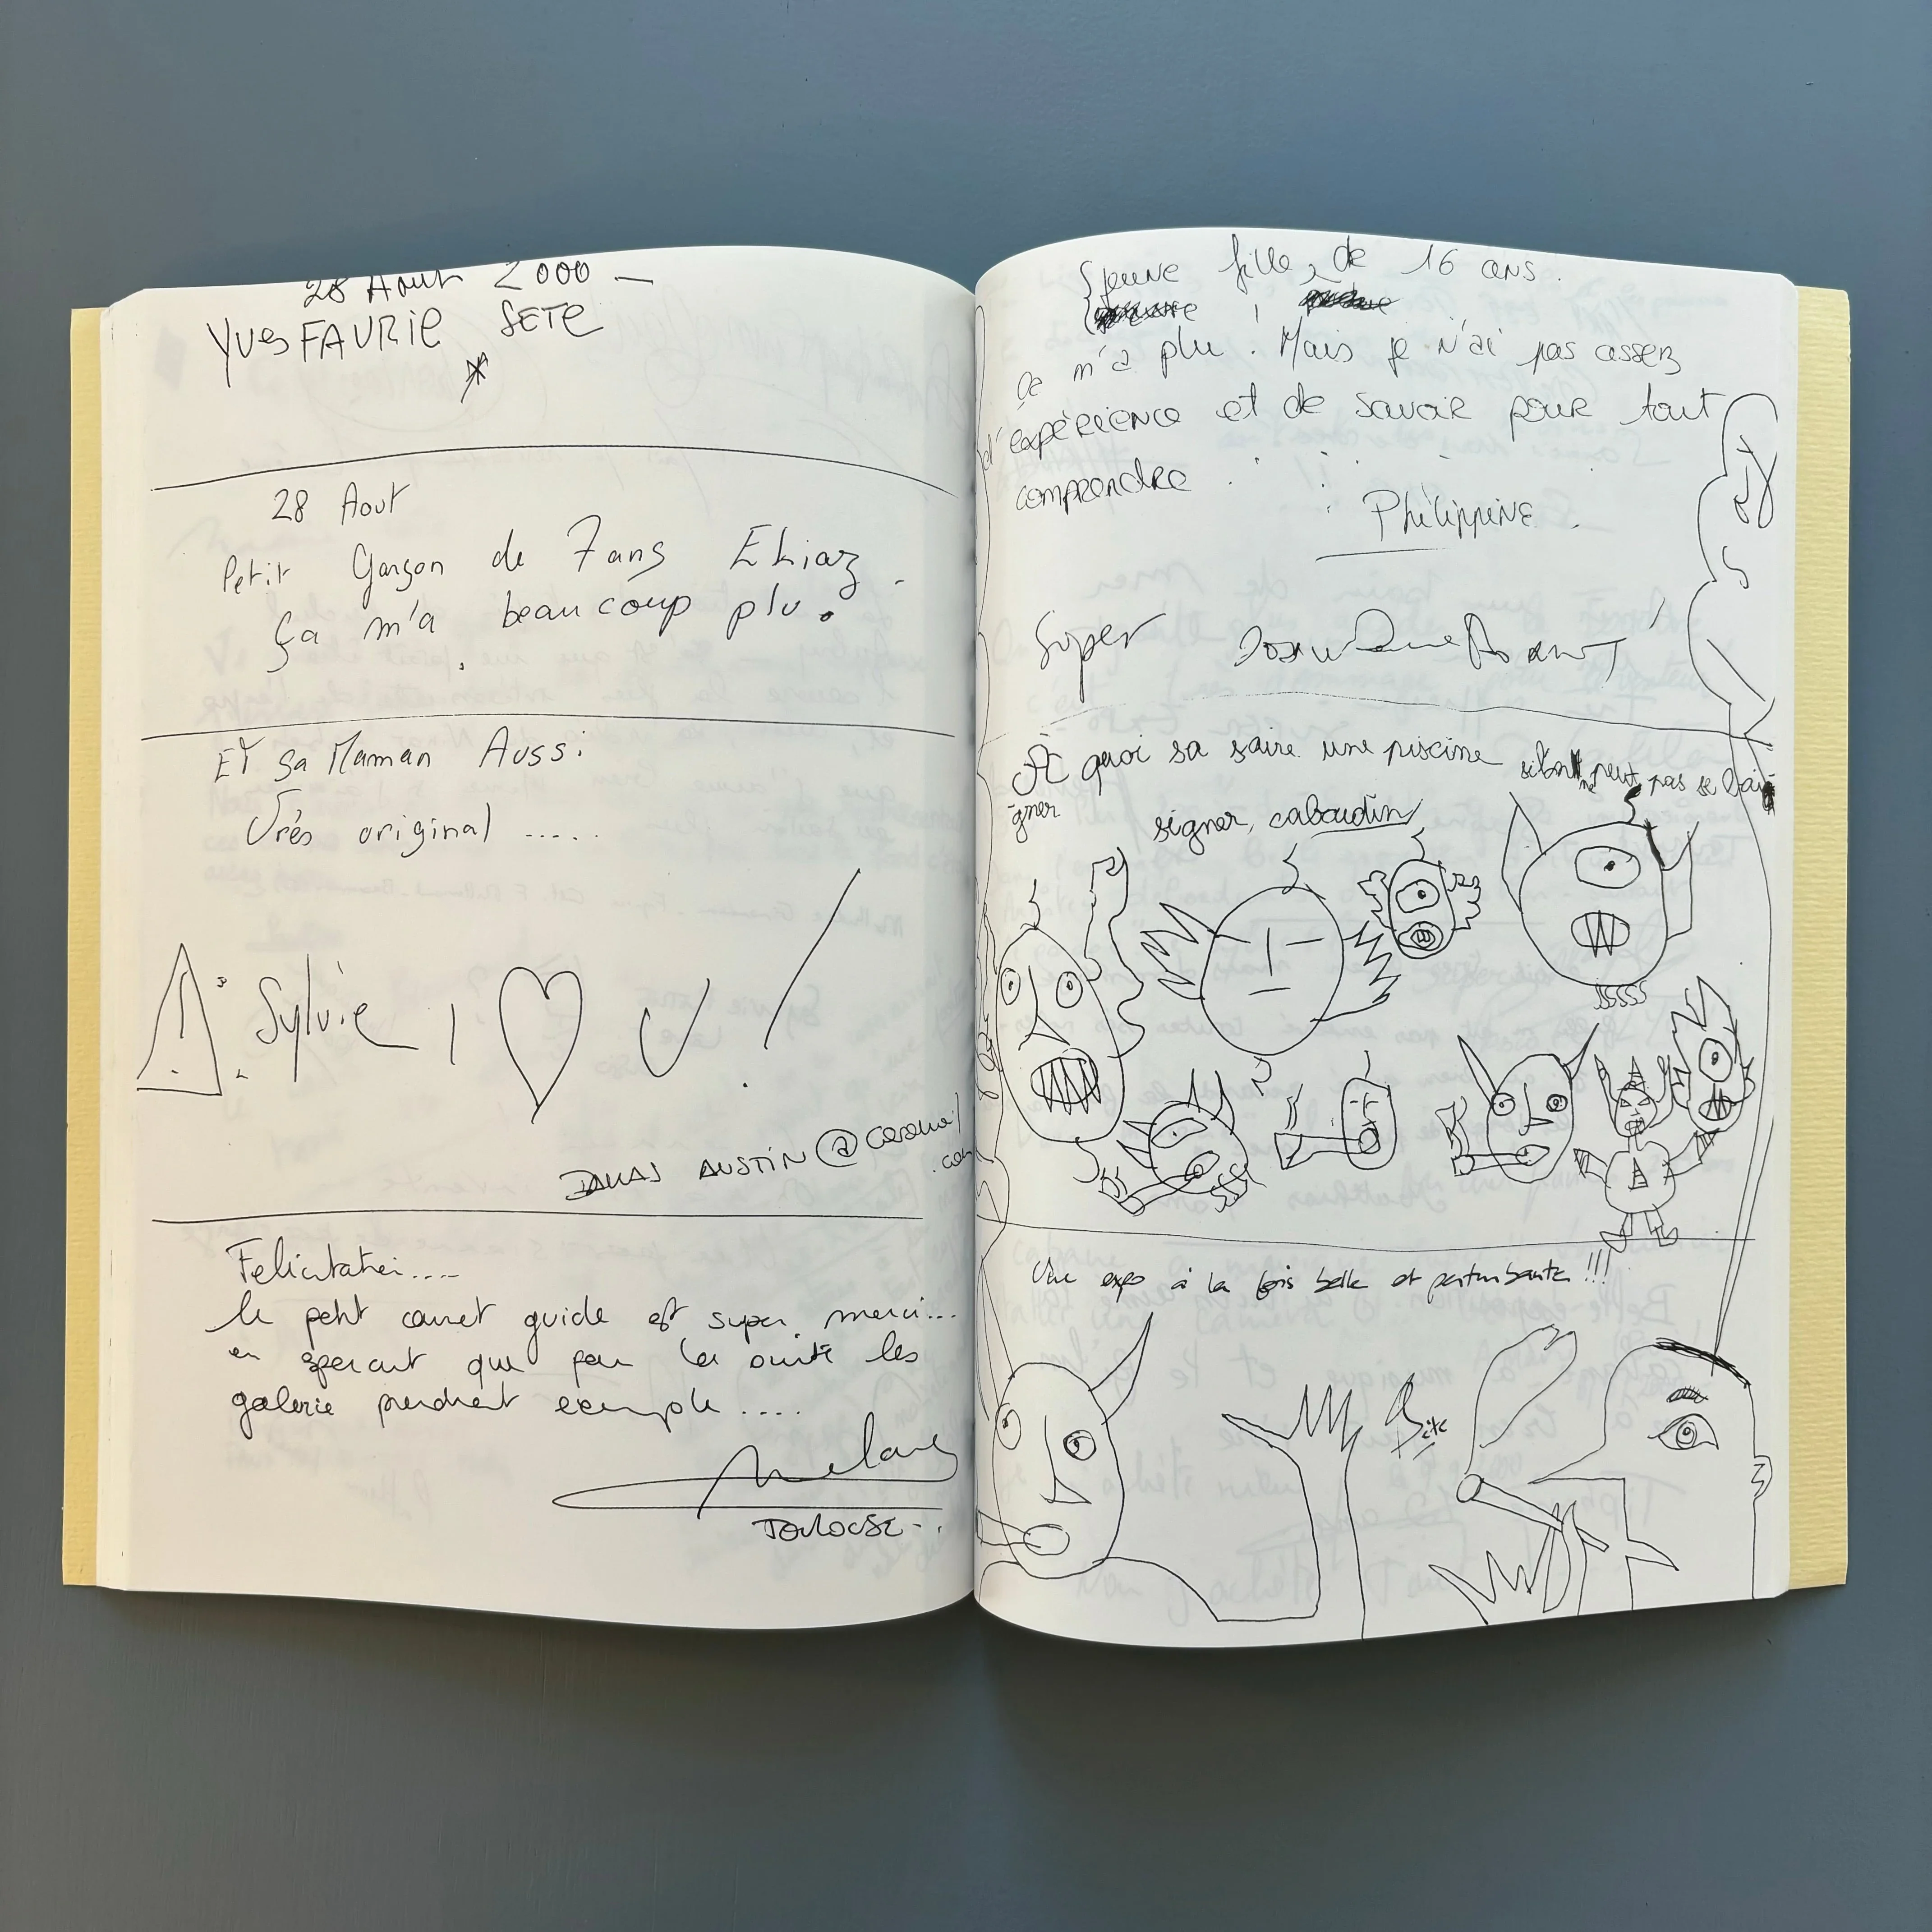 28 Aout 2000 —
Yves FAURIE SETE
28 Aout
Petit Garçon de 7 ans
Ça m'a beaucoup plu.
ET sa Maman Aussi
Très original .....
! Sylvie I ♡ U !
AUSTIN @ caramail
.com
Felicitation....
le petit carnet guide est super merci...
en sperant que par la suite les
galerie prendront exemple ....
TOULOUSE..
Jeune fille, de 16 ans.
Ça m'a plu ! Mais je n'ai pas assez
d'expérience et de savoir pour tout
comprendre.
Philippine.
Super
À quoi sa saire une piscine si l'on ne peut pas se bai
gner
signer, cabaudin
Une expo à la fois belle et perturbante !!!
Bite